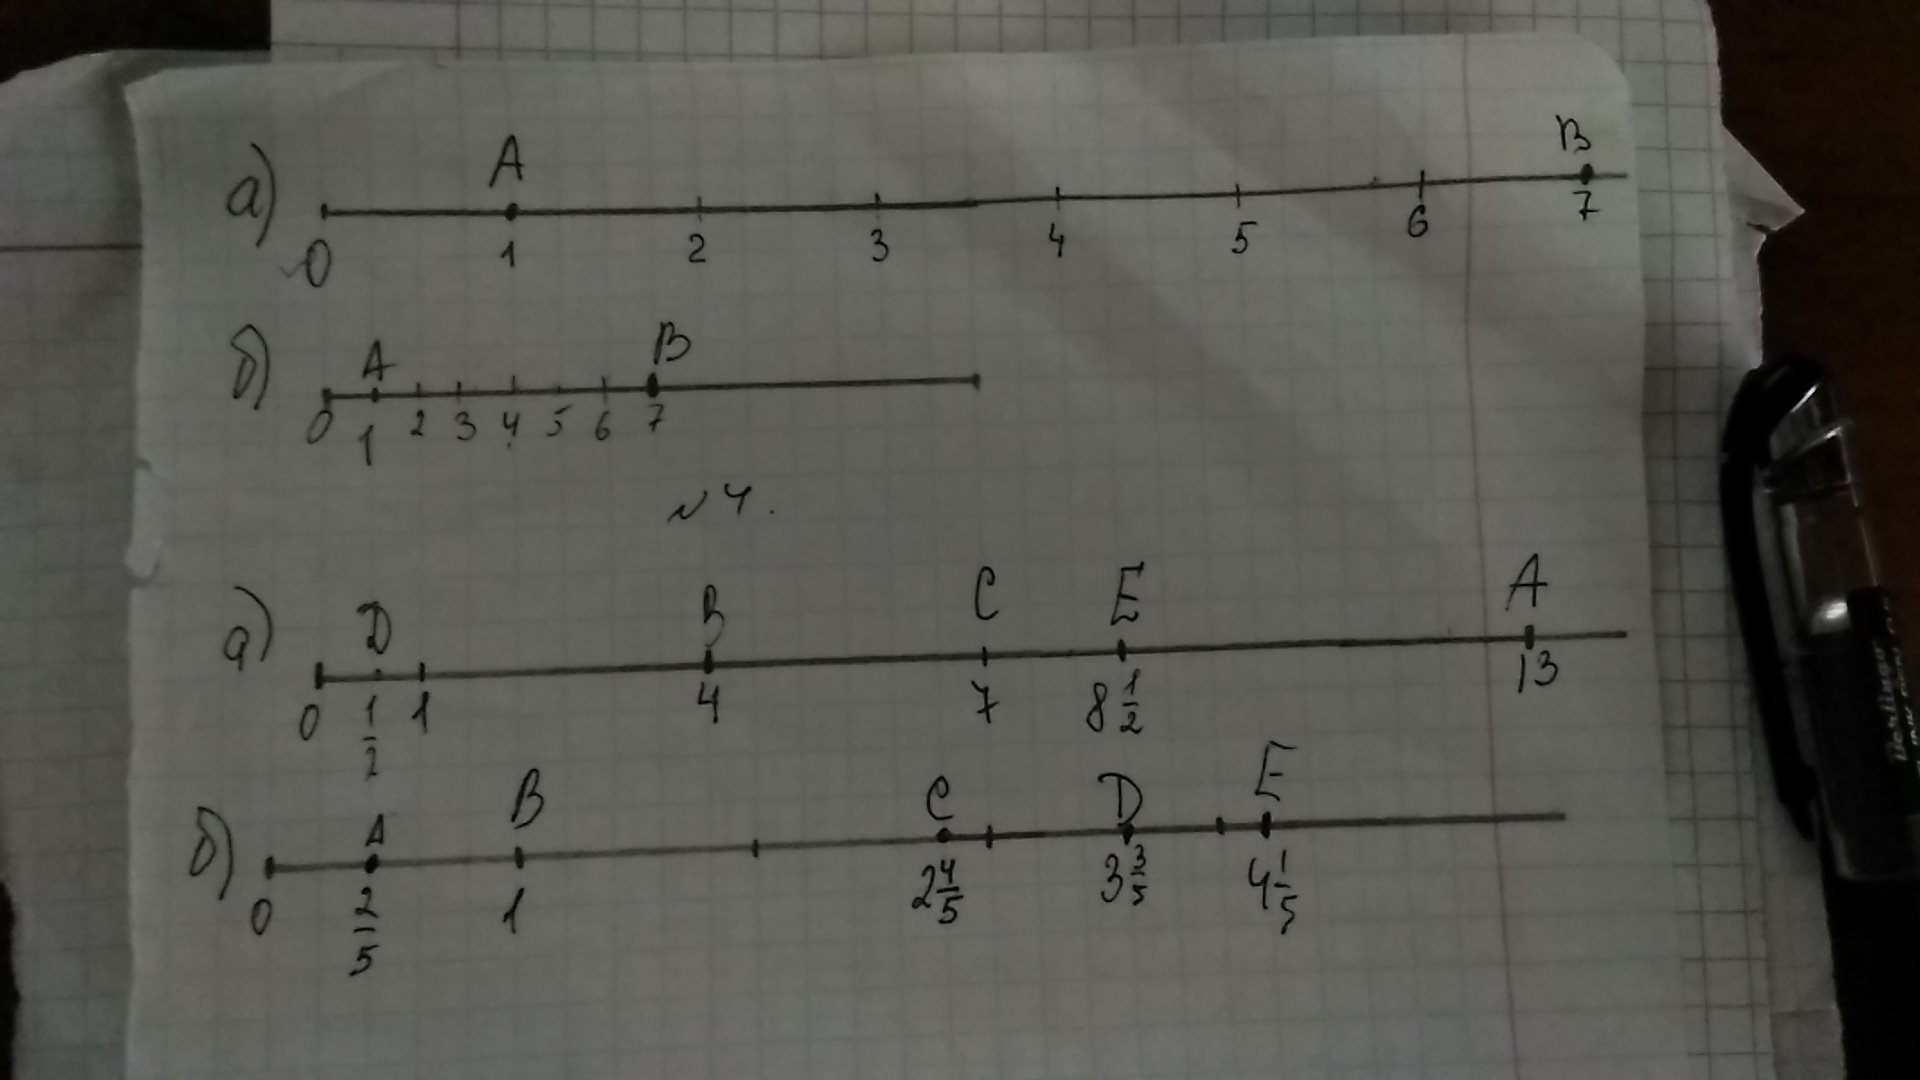 а) A B
0 1 2 3 4 5 6 7
б) A B
0 1 2 3 4 5 6 7
№ 4.
а) D B C E A
0 1/2 1 4 7 8 1/2 13
б) A B C D E
0 2/5 1 2 4/5 3 3/5 4 1/5